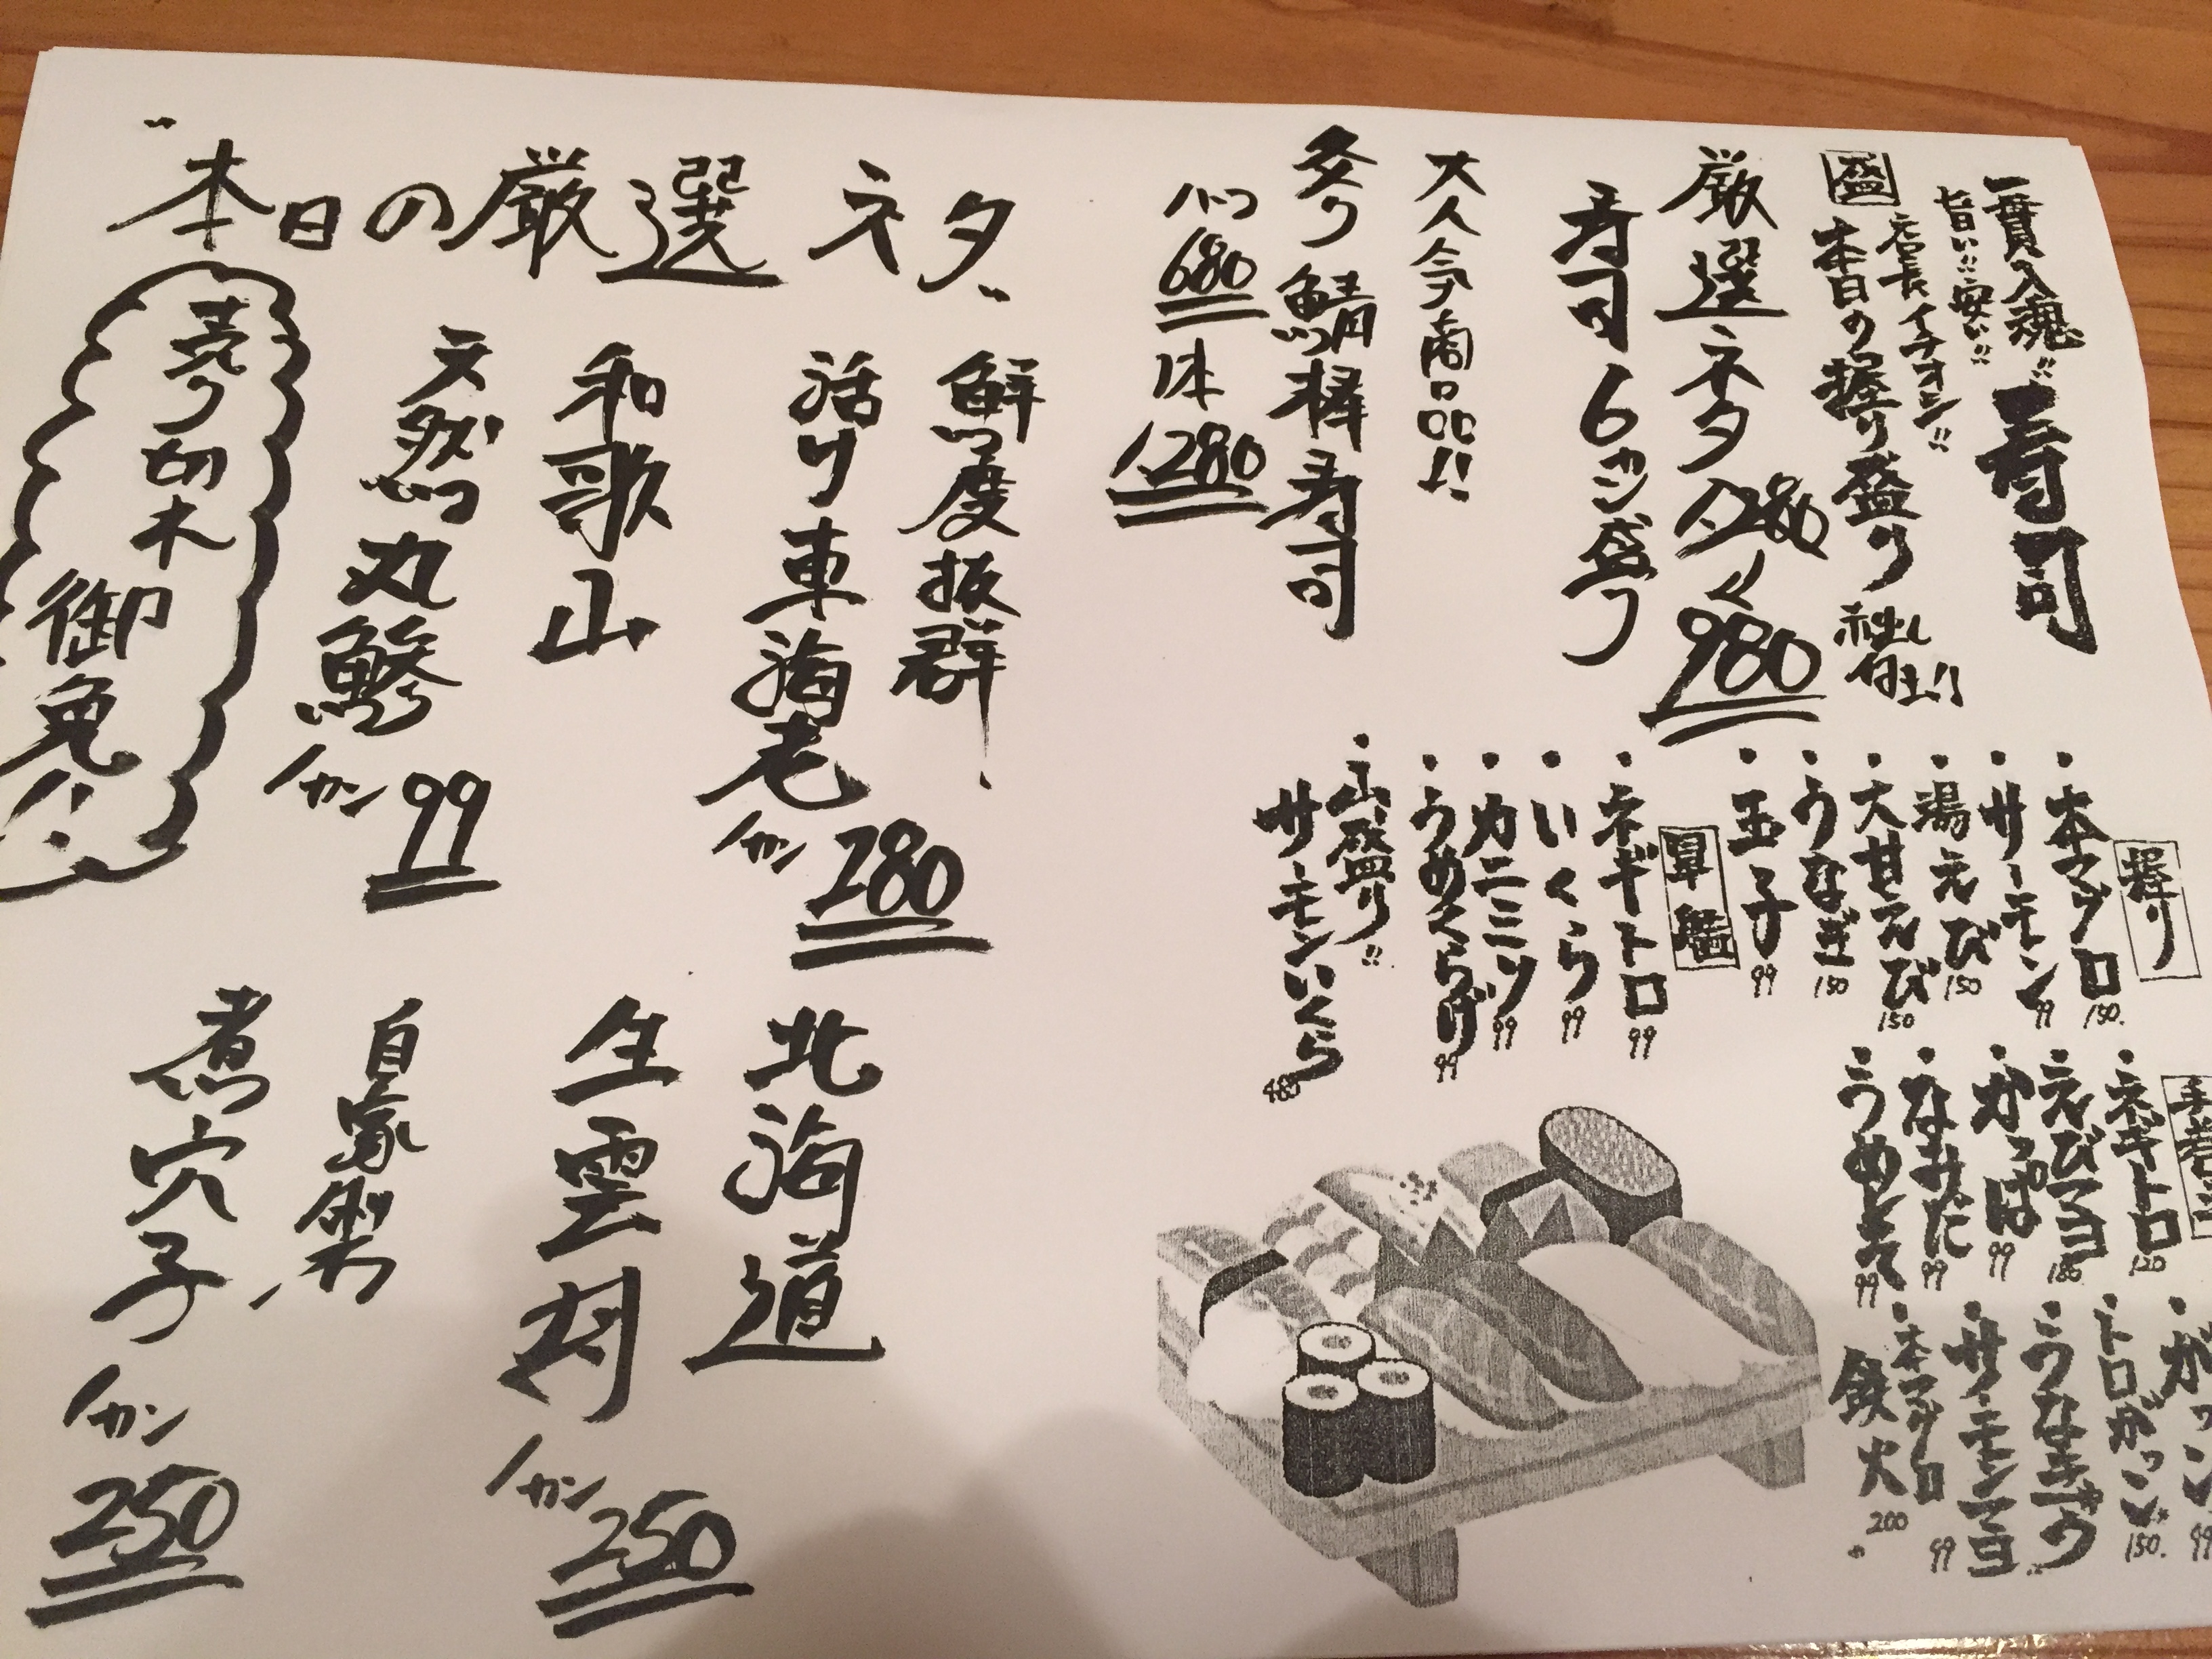 一貫入魂!! 寿司
旨い!!安い!!
店長イチオシ!!
盛 本日の握り盛り 赤出し付!!
厳選ネタ 1,280 980
寿司6カン盛り
大人気商品!!
炙り鯖棒寿司
ハーフ 680 1本 1,280
握り
・本マグロ 150.
・サーモン 99
・湯えび 150
・大甘えび 150
・うなぎ 150
・玉子 99
軍艦
・ネギトロ 99
・いくら 99
・カニミソ 99
・うめくらげ 99
・山盛り!!
サーモンいくら 480
手巻き
・ネギトロ 120
・えびマヨ 180
・かっぱ 99
・なみだ 99
・うめしそ 99
トロがっこ 150.
・うなキュウ
・サーモンマヨ 99
・本マグロ
鉄火 200
"本日の厳選ネタ"
鮮度抜群
活け車海老 1カン 280
和歌山
天然丸鯵 1カン 99
北海道
生雲丹 1カン 250
自家製
煮穴子 1カン 250
売り切れ
御免!!